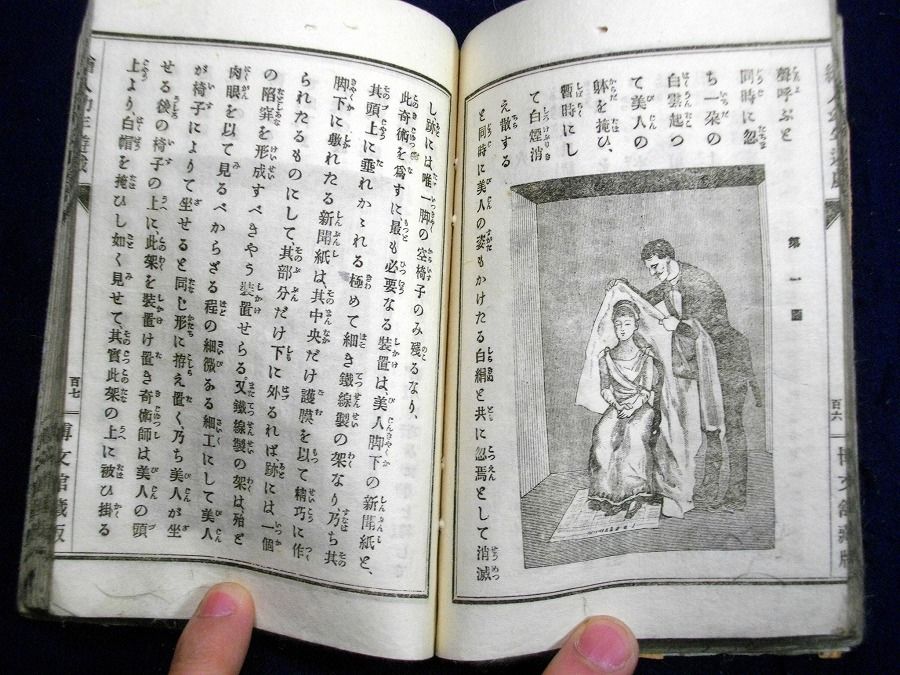 聲呼ぶと
同時に忽
ち一朶の
白雲起つ
て美人の
躰を掩ひ、
暫時にし
て白煙消
え散する。
と同時に美人の姿もかけたる白絹と共に忽焉として消滅
第一圖
百六
し、跡には唯一脚の空椅子のみ殘るなり、
此奇術を爲すに最も必要なる裝置は美人脚下の新聞紙と、
其頭上に垂れかゝる極めて細き鐵線製の架なり乃ち其
脚下に敷れたる新聞紙は、其中央だけ護膜を以て精巧に作
られたるものにして、其部分だけ下に外るれば、跡には一個
の陷穽を形成すべきやう裝置せらる又鐵線製の架は、殆と
肉眼を以て見るべからざる程の細微なる細工にして美人
が椅子によりて坐せると同じ形に拵え置く、乃ち美人が坐
せる後の椅子の上に、此架を裝置け置き奇術師は美人の頭
上より白帽を掩ひし如く見せて、其實此架の上に被ひ掛る
百七
博文館藏版